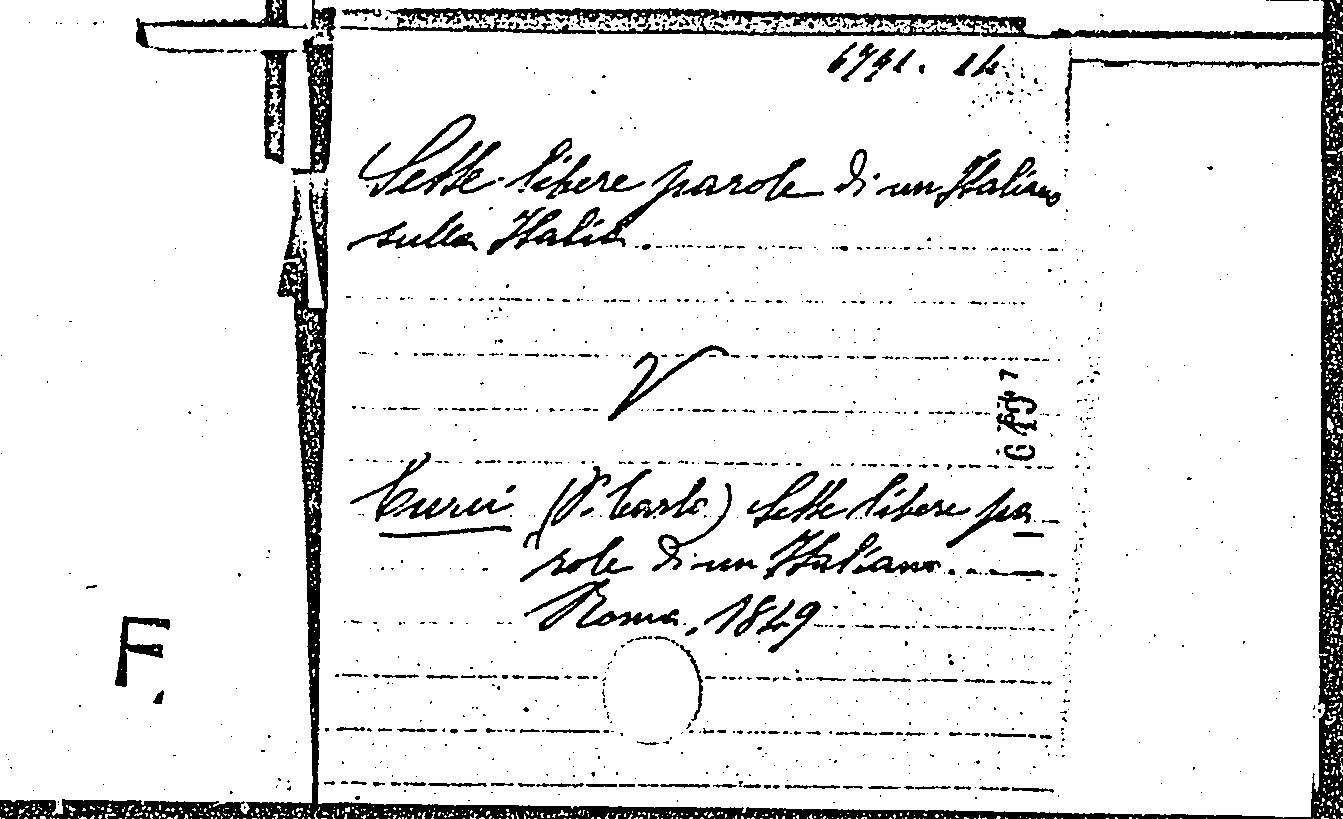 6791. 14
Sette libere parole di un Italiano
sulla Italia.
V
Curci (P. Carlo) Sette libere pa-
role di un Italiano.
Roma, 1849
F